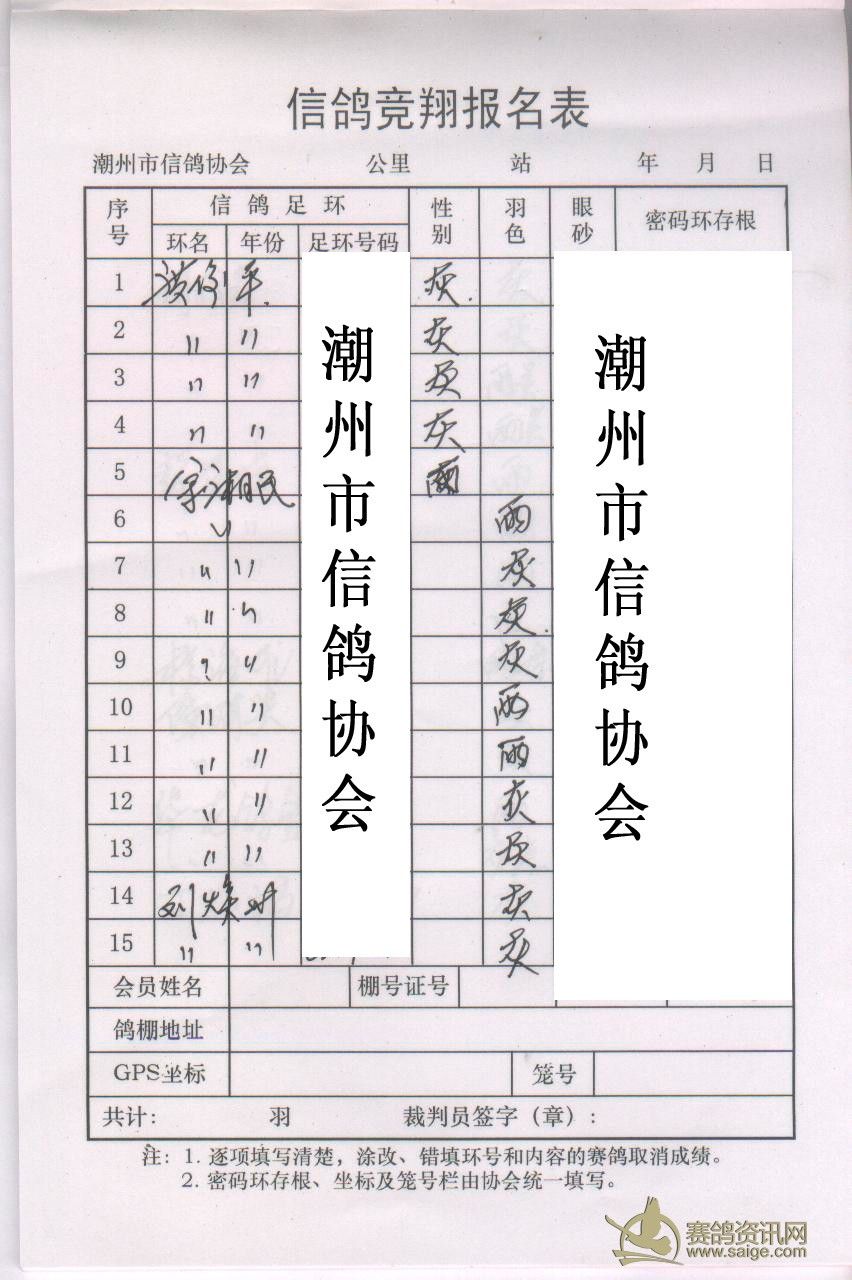 信鸽竞翔报名表
潮州市信鸽协会 公里 站 年 月 日
序号 信鸽足环 性别 羽色 眼砂 密码环存根
环名 年份 足环号码
1 平 灰
2 〃 〃 灰
3 〃 〃 灰
4 〃 〃 灰
5 民 雨
6 〃 雨
7 〃 〃 灰
8 〃 〃 灰
9 〃 〃 灰
10 〃 〃 雨
11 〃 〃 雨
12 〃 〃 灰
13 〃 〃 灰
14 刘焕 灰
15 〃 〃 灰
潮州市信鸽协会
潮州市信鸽协会
会员姓名 棚号证号
鸽棚地址
GPS坐标 笼号
共计: 羽 裁判员签字(章):
注: 1. 逐项填写清楚,涂改、错填环号和内容的赛鸽取消成绩。
2. 密码环存根、坐标及笼号栏由协会统一填写。
赛鸽资讯网
www.saige.com